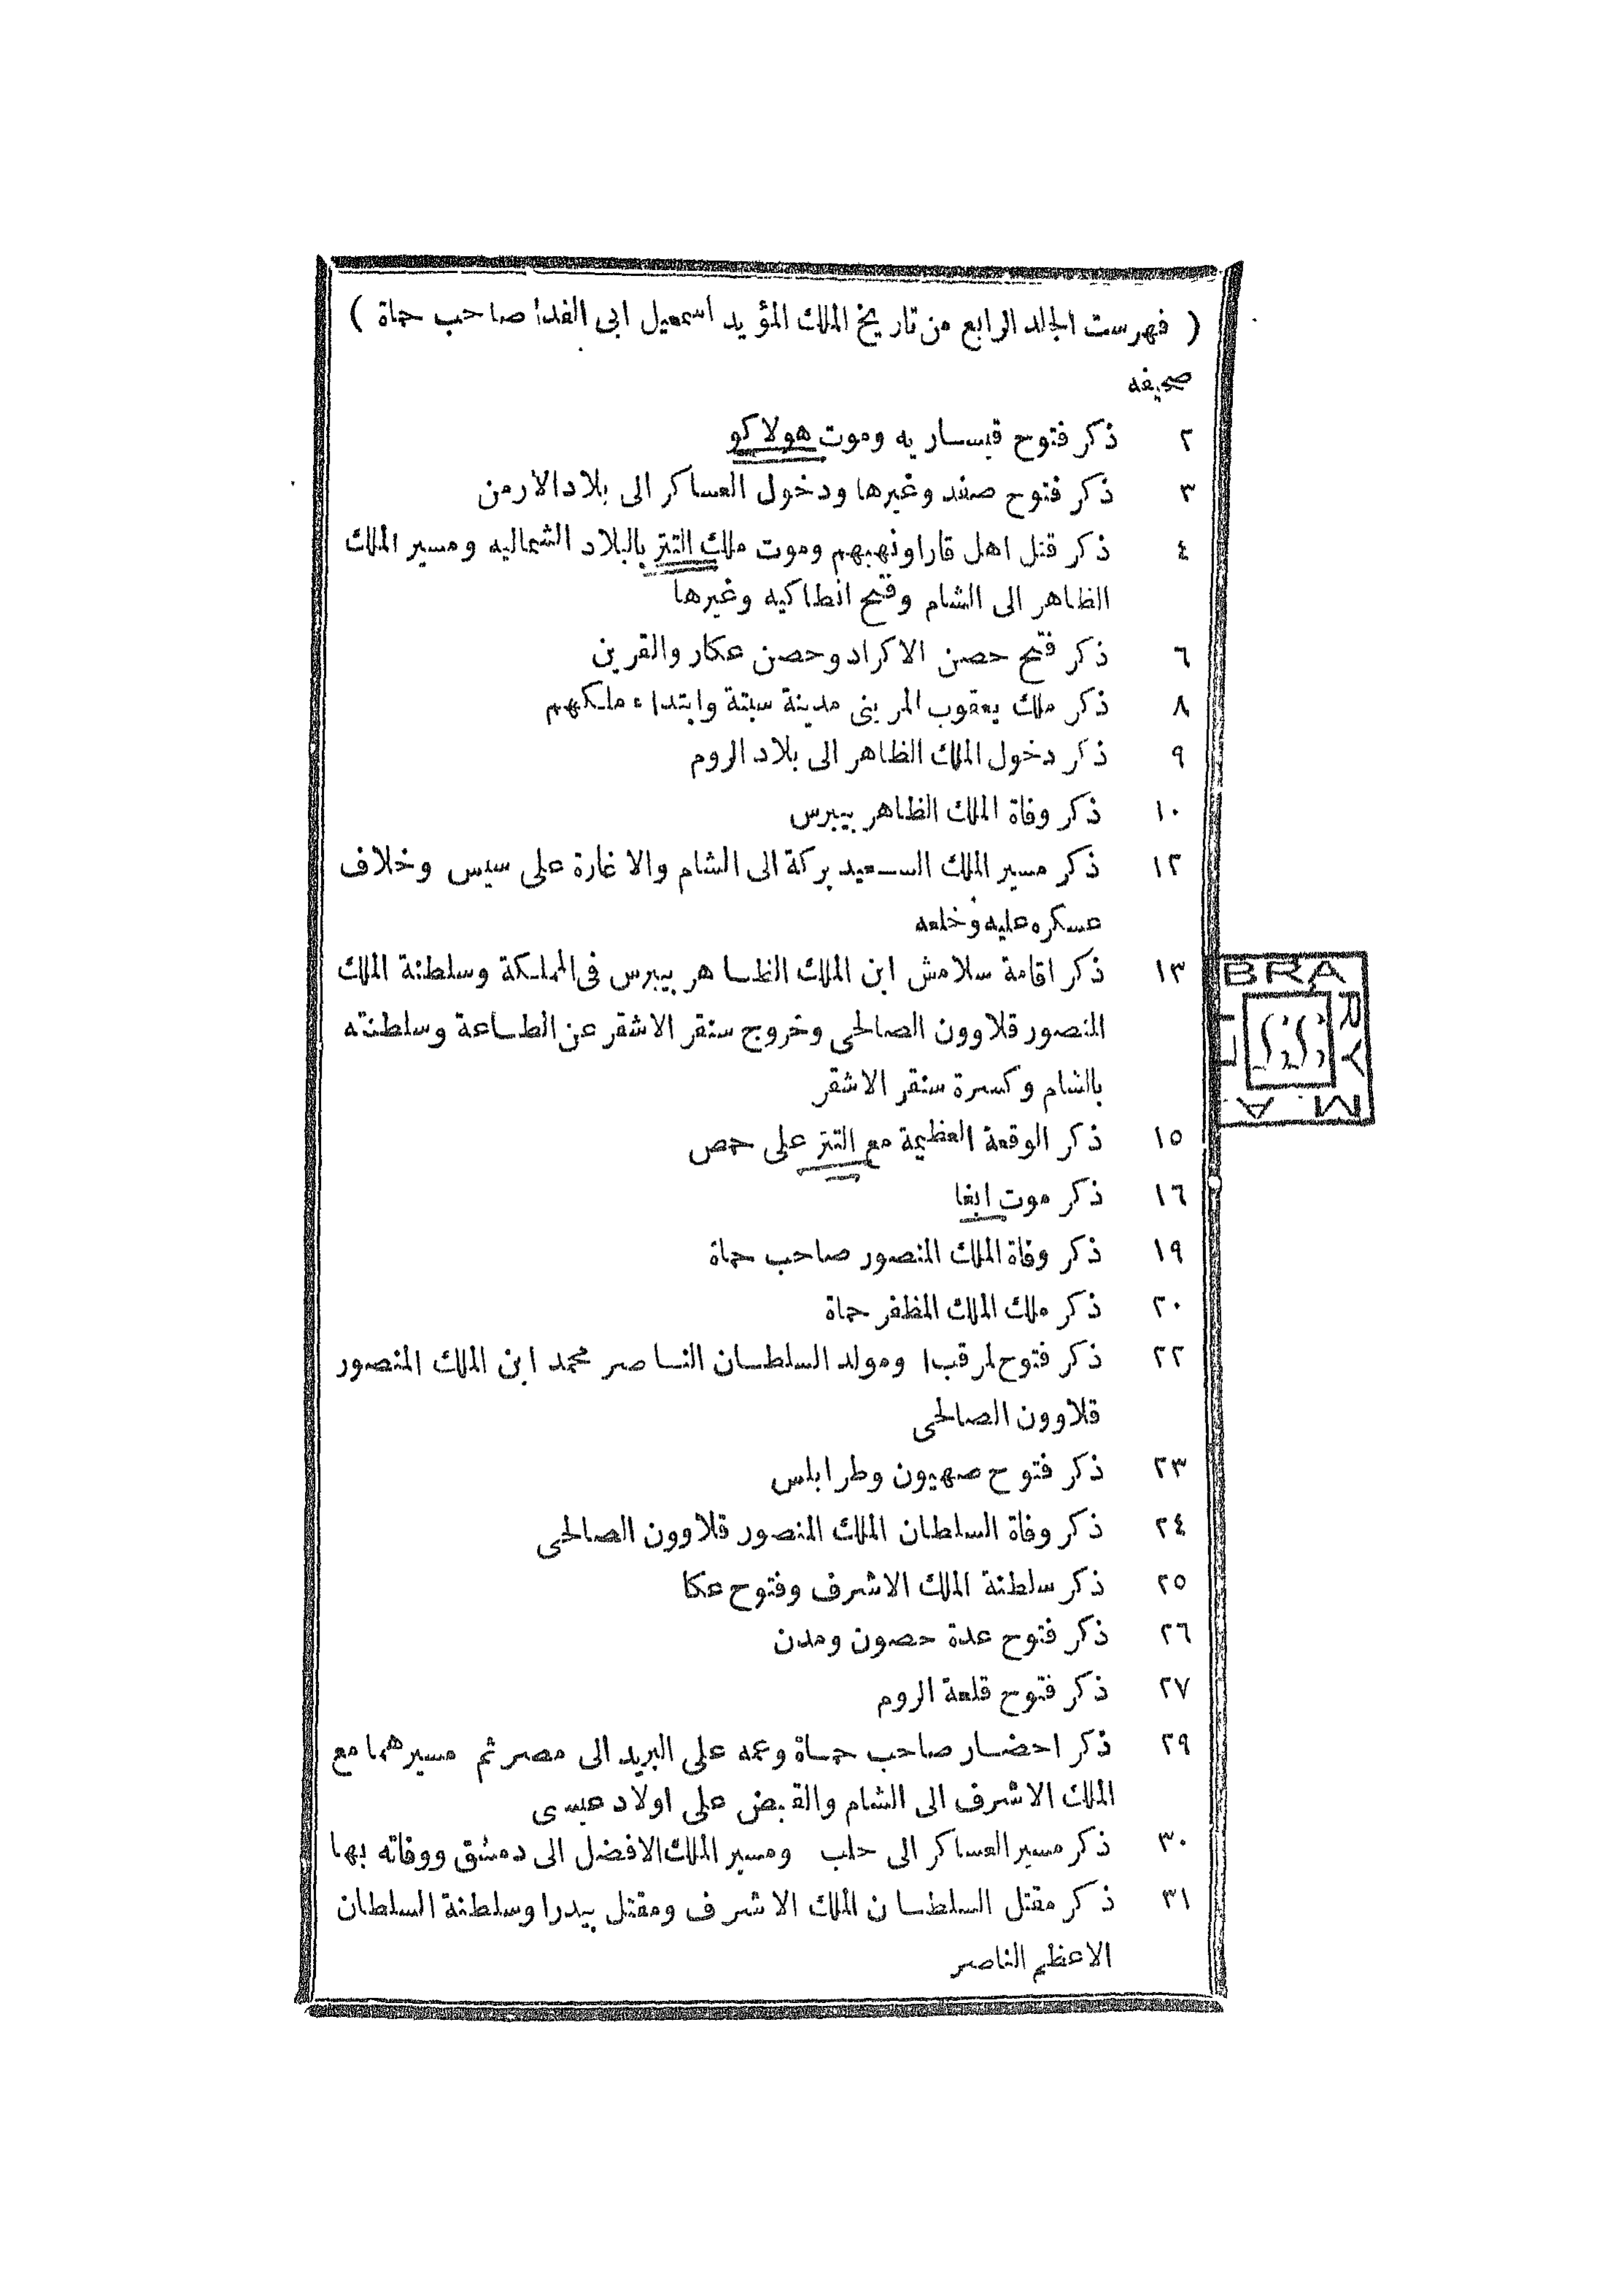 ( فهرست الجلد الرابع من تاريخ الملك المؤيد اسمعيل ابى الفدا صاحب حماة )
صحيفه
٢ ذكر فتوح قيساريه وموت هولاكو
٣ ذكر فتوح صفد وغيرها ودخول العساكر الى بلاد الارمن
٤ ذكر قتل اهل قارا ونهبهم وموت ملك التتر بالبلاد الشماليه ومسير الملك
الظاهر الى الشام وفتح انطاكيه وغيرها
٦ ذكر فتح حصن الاكراد وحصن عكار والقرين
٨ ذكر ملك يعقوب المرينى مدينة سبتة وابتداء ملكهم
٩ ذكر دخول الملك الظاهر الى بلاد الروم
١٠ ذكر وفاة الملك الظاهر بيبرس
١٢ ذكر مسير الملك السعيد بركة الى الشام والاغارة على سيس وخلاف
عسكره عليه وخلعه
١٣ ذكر اقامة سلامش ابن الملك الظاهر بيبرس فى المملكة وسلطنة الملك
المنصور قلاوون الصالحى وخروج سنقر الاشقر عن الطاعة وسلطنته
بالشام وكسرة سنقر الاشقر
١٥ ذكر الوقعة العظيمة مع التتر على حمص
١٦ ذكر موت ابغا
١٩ ذكر وفاة الملك المنصور صاحب حماة
٢٠ ذكر ملك الملك المظفر حماة
٢٢ ذكر فتوح لمرقب ا ومولد السلطان الناصر محمد ابن الملك المنصور
قلاوون الصالحى
٢٣ ذكر فتوح صهيون وطرابلس
٢٤ ذكر وفاة السلطان الملك المنصور قلاوون الصالحى
٢٥ ذكر سلطنة الملك الاشرف وفتوح عكا
٢٦ ذكر فتوح عدة حصون ومدن
٢٧ ذكر فتوح قلعة الروم
٢٩ ذكر احضار صاحب حماة وعمه على البريد الى مصر ثم مسيرهما مع
الملك الاشرف الى الشام والقبض على اولاد عيسى
٣٠ ذكر مسير العساكر الى حلب ومسير الملك الافضل الى دمشق ووفاته بها
٣١ ذكر مقتل السلطان الملك الاشرف ومقتل بيدرا وسلطنة السلطان
الاعظم الناصر